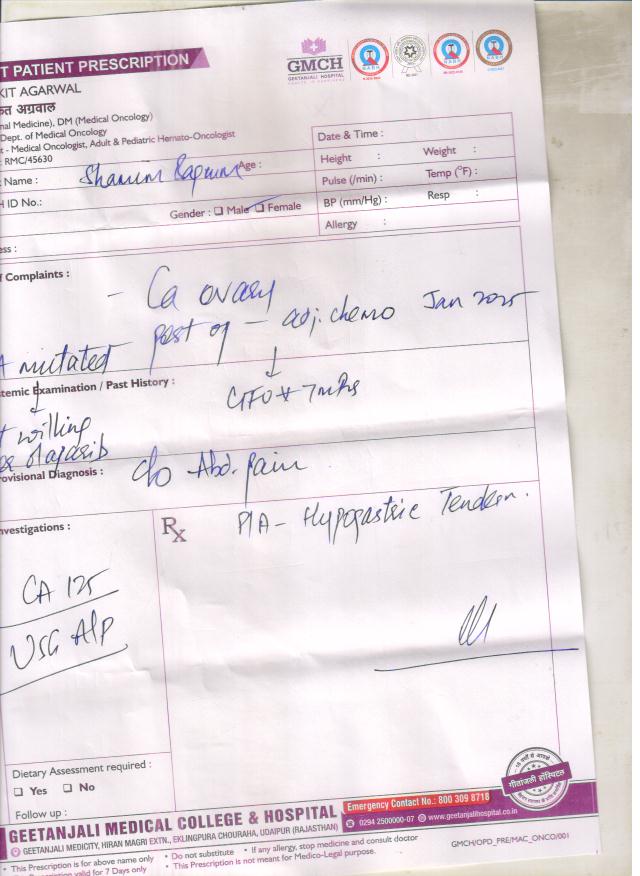 T PATIENT PRESCRIPTION
GMCH
GEETANJALI HOSPITAL
KIT AGARWAL
कत अग्रवाल
nal Medicine), DM (Medical Oncology)
Dept. of Medical Oncology
t - Medical Oncologist, Adult & Pediatric Hemato-Oncologist
: RMC/45630
Name : Age :
H ID No.:
Gender : ☐ Male ☐ Female
Date & Time :
Height : Weight :
Pulse (/min) : Temp (°F) :
BP (mm/Hg) : Resp :
Allergy :
ess :
f Complaints :
- Ca ovary
post op - adj. chemo Jan 2025
A mutated
temic Examination / Past History :
t willing
rovisional Diagnosis :
c/o Abd. pain
nvestigations :
Rx
P/A - Hypogastric Tendern.
CA 125
USG A/P
Dietary Assessment required :
☐ Yes ☐ No
Follow up :
गीतांजली हॉस्पिटल
GEETANJALI MEDICAL COLLEGE & HOSPITAL
Emergency Contact No.: 800 309 8718
GEETANJALI MEDICITY, HIRAN MAGRI EXTN., EKLINGPURA CHOURAHA, UDAIPUR (RAJASTHAN)
0294 2500000-07 www.geetanjalihospital.co.in
• This Prescription is for above name only • Do not substitute • If any allergy, stop medicine and consult doctor
valid for 7 Days only • This Prescription is not meant for Medico-Legal purpose.
GMCH/OPD_PRE/MAC_ONCO/001